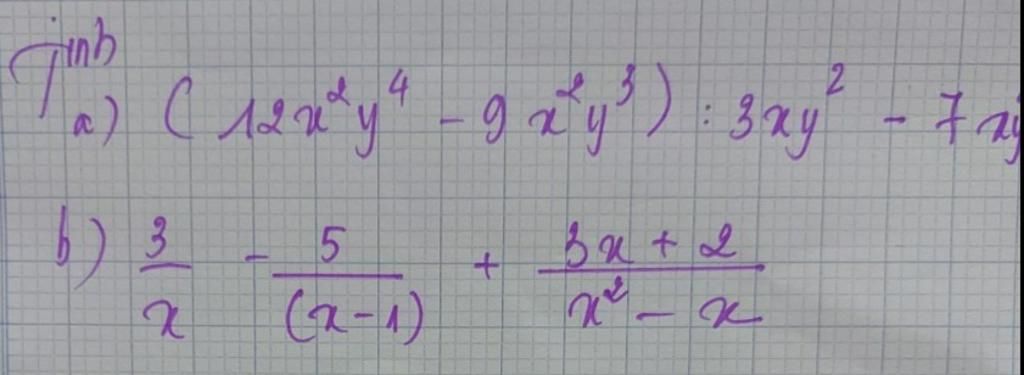 Tính
a) (12x²y⁴ - 9x²y³) : 3xy² - 7xy
b) 3/x - 5/(x-1) + (3x + 2)/(x² - x)